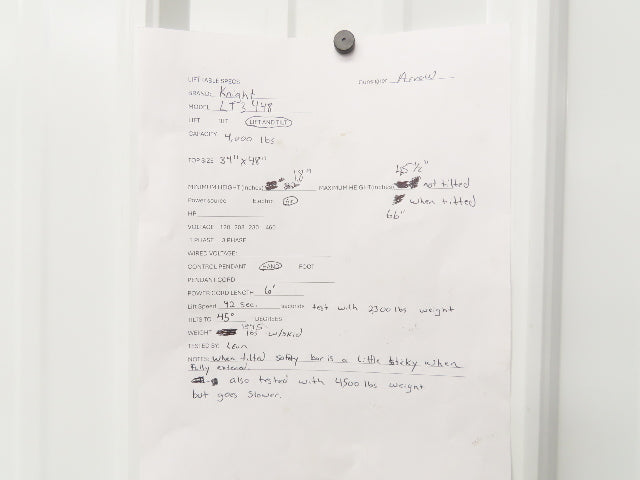 LIFT TABLE SPECS Consignor Arrow
BRAND: Knight
MODEL LTS 448
LIFT TILT LIFT AND TILT
CAPACITY 4,000 lbs
TOP SIZE 34" x 48"
45 1/2"
MINIMUM HEIGHT (inches) MAXIMUM HEIGHT (inches) not tilted
Power source Electric Air when tilted
66"
HP
VOLTAGE 120 208 230 460
1 PHASE 3 PHASE
WIRED VOLTAGE:
CONTROL PENDANT HAND FOOT
PENDANT CORD
POWER CORD LENGTH 6'
Lift Speed 42 sec. seconds test with 2300 lbs weight
TILTS TO 45° DEGREES
WEIGHT 1945 lbs w/skid
TESTED BY: Leun
NOTES: when tilted safety bar is a little sticky when
fully extend.
also tested with 4500 lbs weight
but goes slower.